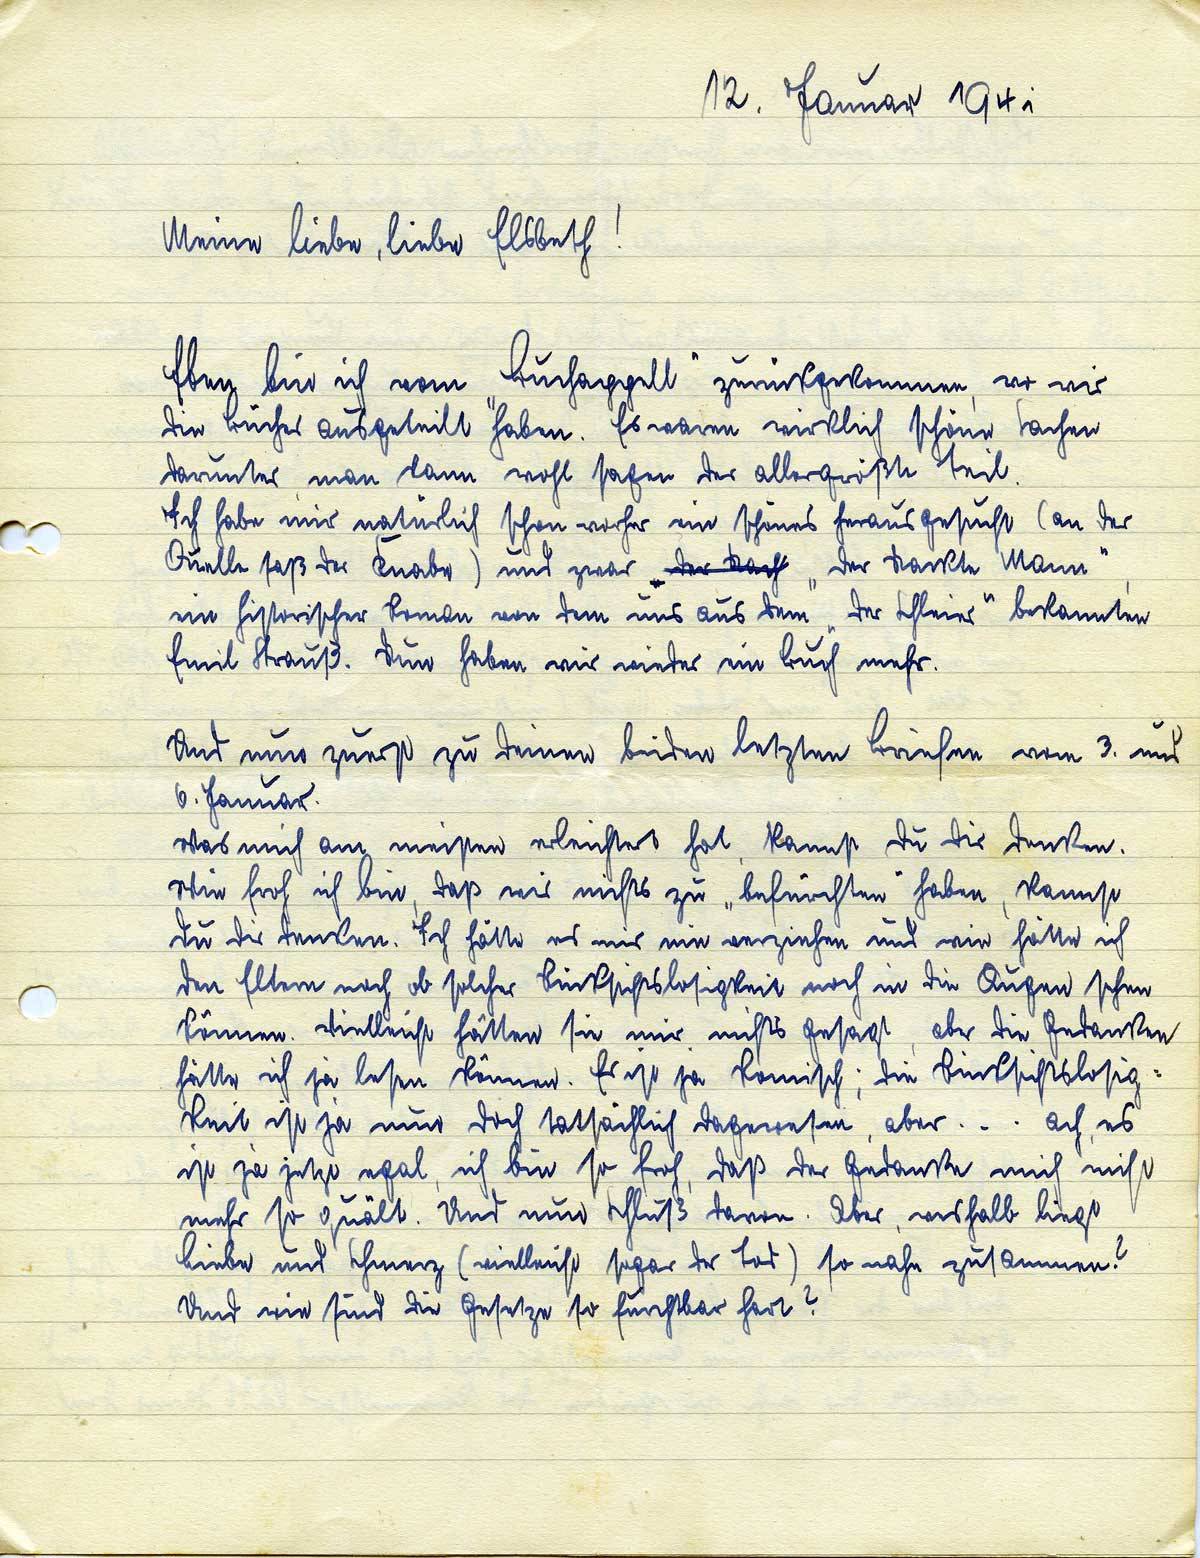 12. Januar 1941
Meine liebe, liebe Elsbeth!
Eben bin ich vom „Buchappell“ zurückgekommen, wo wir
die Bücher ausgeteilt haben. Es waren wirklich schöne Sachen
darunter, man kann wohl sagen der allergrößte Teil.
Ich habe mir natürlich schon vorher ein schönes herausgesucht (an der
Quelle saß der Knabe) und zwar „der Nach „der Nackte Mann“,
ein historischer Roman von dem uns aus dem „der Schleier“ bekannten
Emil Strauß. Nun haben wir wieder ein Buch mehr.
Und nun zuerst zu Deinen beiden letzten Briefen vom 3. und
6. Januar.
Was mich am meisten erleichtert hat, kannst Du Dir denken.
Wie froh ich bin, daß wir nichts zu „befürchten“ haben, kannst
Du Dir denken. Ich hätte es mir nie verziehen und wie hätte ich
den Eltern noch ob solcher Rücksichtslosigkeit noch in die Augen sehen
können. Vielleicht hätten sie mir nichts gesagt, aber die Gedanken
hätte ich ja lesen können. Es ist ja komisch; die Rücksichtslosig-
keit ist ja nun doch tatsächlich dagewesen, aber... ach, es
ist ja jetzt egal, ich bin so froh, daß der Gedanke mich nicht
mehr so quält. Und nun Schluß davon. Aber, weshalb liegt
Liebe und Schmerz (vielleicht sogar der Tod) so nahe zusammen?
Und wie sind die Gesetze so furchtbar hart?